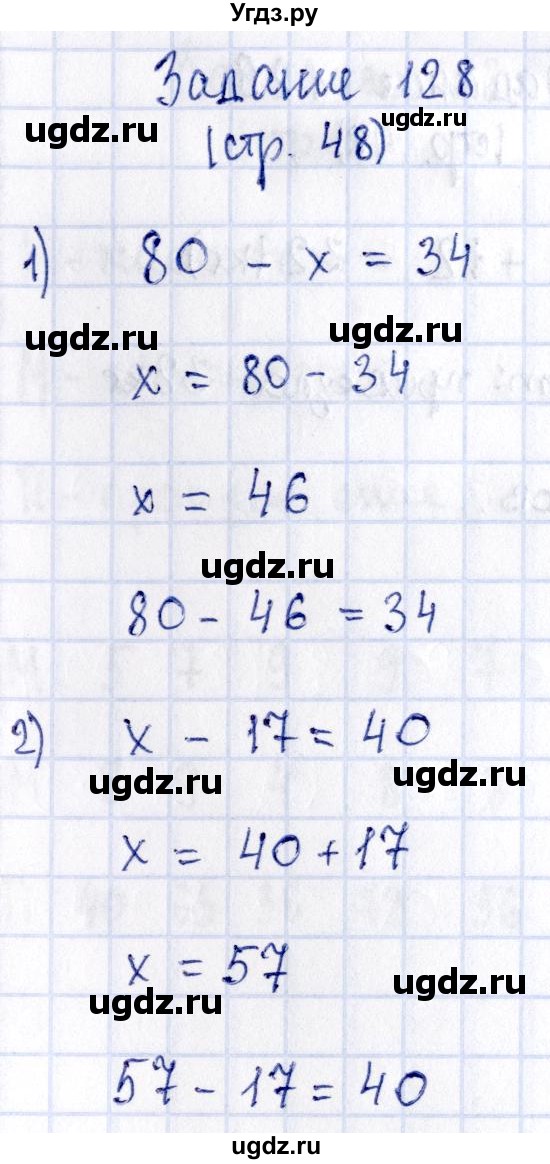 Угдз.ру
Задание 128
ugdz.ru ugdz.ru
(стр. 48)
1) 80 - x = 34
ugdz.ru ugdz.ru
x = 80 - 34
x = 46
ugdz.ru
80 - 46 = 34
2) x - 17 = 40
ugdz.ru ugdz.ru
x = 40 + 17
x = 57
ugdz.ru ugdz.ru
57 - 17 = 40
ugdz.ru